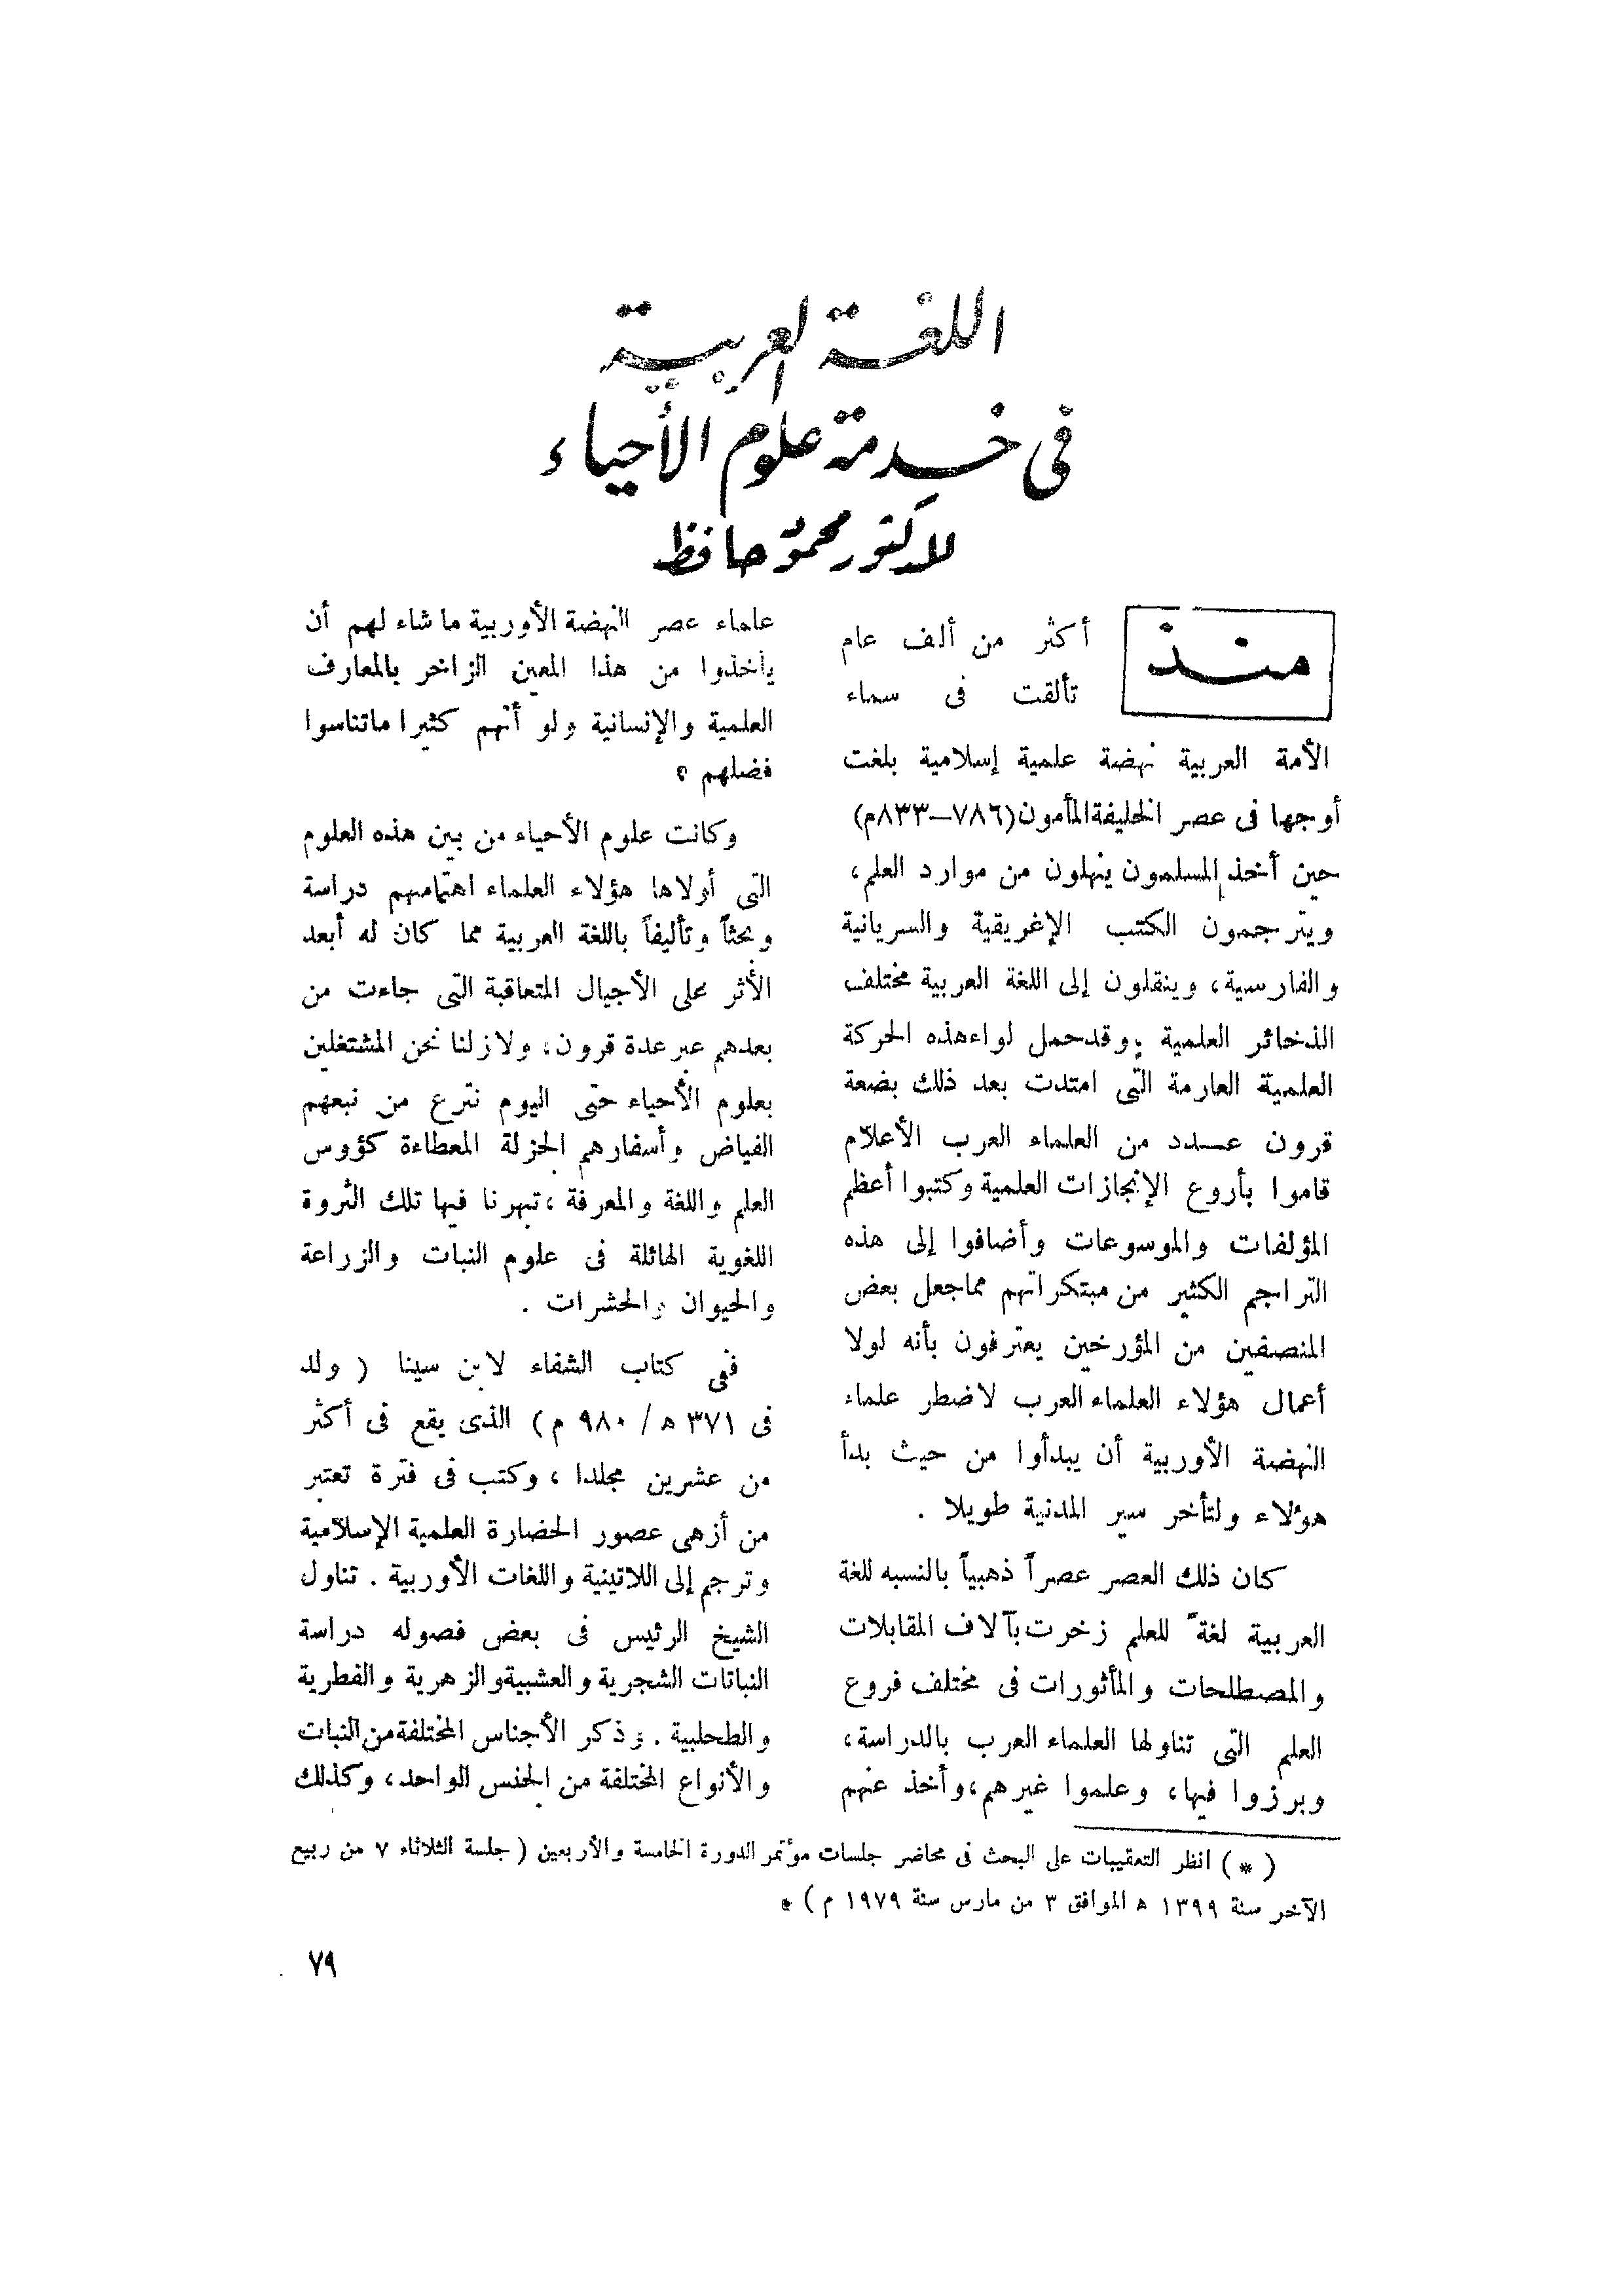 اللغة العربية
فى خدمة علوم الأحياء
للدكتور محمود حافظ
منذ
أكثر من ألف عام
تألقت فى سماء
الأمة العربية نهضة علمية إسلامية بلغت
أوجها فى عصر الخليفة المأمون (٧٨٦–٨٣٣م)
حين أخذ المسلمون ينهلون من موارد العلم،
ويترجمون الكتب الإغريقية والسريانية
والفارسية، وينقلون إلى اللغة العربية مختلف
الذخائر العلمية . وقد حمل لواء هذه الحركة
العلمية العارمة التى امتدت بعد ذلك بضعة
قرون عدد من العلماء العرب الأعلام
قاموا بأروع الإنجازات العلمية وكتبوا أعظم
المؤلفات والموسوعات وأضافوا إلى هذه
التراجم الكثير من مبتكراتهم مما جعل بعض
المنصفين من المؤرخين يعترفون بأنه لولا
أعمال هؤلاء العلماء العرب لاضطر علماء
النهضة الأوربية أن يبدأوا من حيث بدأ
هؤلاء ولتأخر سير المدنية طويلا .
كان ذلك العصر عصراً ذهبياً بالنسبه للغة
العربية لغةً للعلم زخرت بآلاف المقابلات
والمصطلحات والمأثورات فى مختلف فروع
العلم التى تناولها العلماء العرب بالدراسة،
وبرزوا فيها، وعلموا غيرهم، وأخذ عنهم
علماء عصر النهضة الأوربية ما شاء لهم أن
يأخذوا من هذا المعين الزاخر بالمعارف
العلمية والإنسانية ولو أنهم كثيرا ماتناسوا
فضلهم .
وكانت علوم الأحياء من بين هذه العلوم
التى أولاها هؤلاء العلماء اهتمامهم دراسة
وبحثاً وتأليفاً باللغة العربية مما كان له أبعد
الأثر على الأجيال المتعاقبة التى جاءت من
بعدهم عبر عدة قرون، ولازلنا نحن المشتغلين
بعلوم الأحياء حتى اليوم نترع من نبعهم
الفياض وأسفارهم الجزلة المعطاءة كؤوس
العلم واللغة والمعرفة ، تبهرنا فيها تلك الثروة
اللغوية الهائلة فى علوم النبات والزراعة
والحيوان والحشرات .
ففى كتاب الشفاء لابن سينا ( ولد
فى ٣٧١ ه / ٩٨٠ م ) الذى يقع فى أكثر
من عشرين مجلدا ، وكتب فى فترة تعتبر
من أزهى عصور الحضارة العلمية الإسلامية
وترجم إلى اللاتينية واللغات الأوربية . تناول
الشيخ الرئيس فى بعض فصوله دراسة
النباتات الشجرية والعشبية والزهرية والفطرية
والطحلبية . وذكر الأجناس المختلفة من النبات
والأنواع المختلفة من الجنس الواحد، وكذلك
( * ) انظر التعقيبات على البحث فى محاضر جلسات مؤتمر الدورة الخامسة والأربعين ( جلسة الثلاثاء ٧ من ربيع
الآخر سنة ١٣٩٩ ه الموافق ٣ من مارس سنة ١٩٧٩ م ) •
٧٩